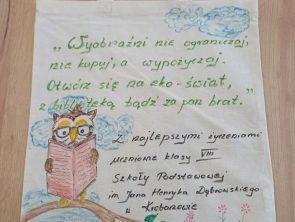 „Wyobraźni nie ograniczaj,
nie kupuj, a wypożyczaj.
Otwórz się na eko-świat,
z biblioteką bądź za pan brat."
Z najlepszymi życzeniami
uczniowie klasy VIII
Szkoły Podstawowej
im. Jana Henryka Dąbrowskiego
w